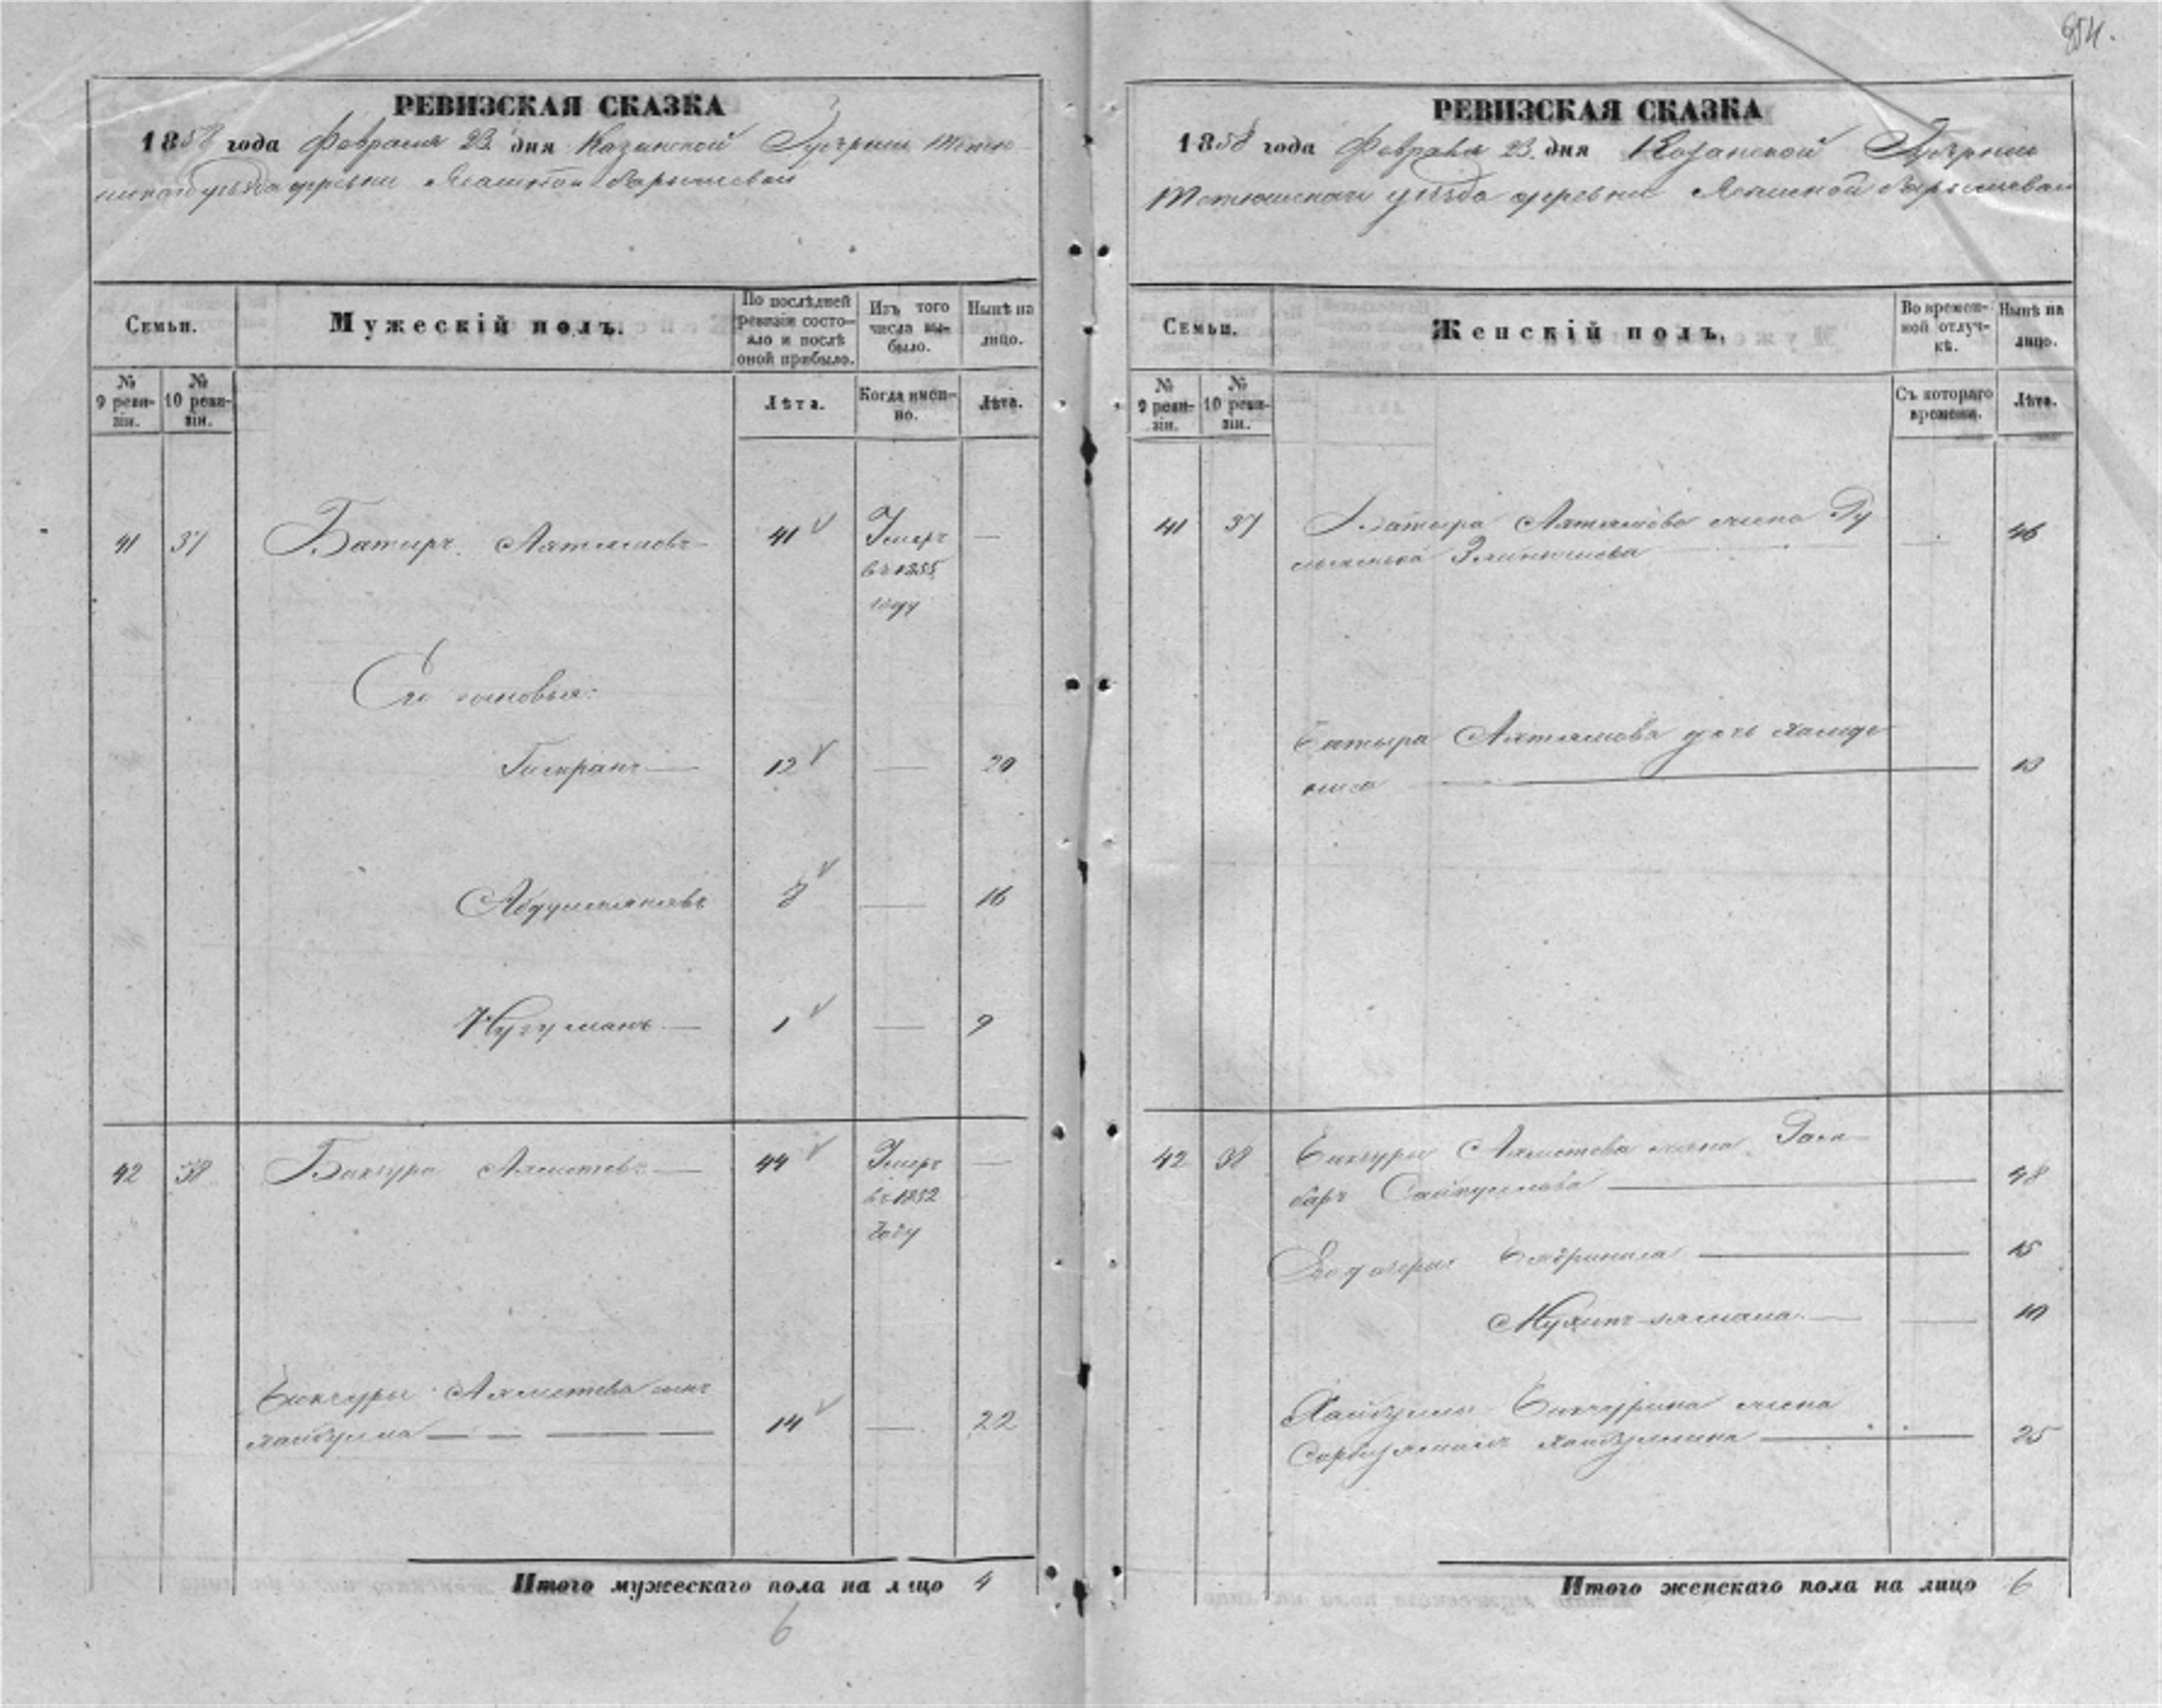 854.
РЕВИЗСКАЯ СКАЗКА
1858 года Февраля 23 дня Казанской Губерніи Тетю-
шскаго уѣзда деревни Ясашной Барышевой
Семьи.
Мужескій полъ.
По послѣдней
ревизіи состо-
яло и послѣ
оной прибыло.
Изъ того
числа вы-
было.
Нынѣ на
лицо.
№
9 реви-
зіи.
№
10 реви-
зіи.
Лѣта.
Когда имен-
но.
Лѣта.
41 37 Батыръ Ахтямовъ 41 Умеръ —
въ 1855
году
Его сыновья:
Гимранъ — 12 — 20
16
Нугуманъ — 1 — 9
42 38 Бикчура Ахметевъ — 44 Умеръ —
въ 1852
году
Бикчуры Ахметева сынъ
Хайбулла — 14 — 22
Итого мужескаго пола на лицо 4
6
РЕВИЗСКАЯ СКАЗКА
1858 года Февраля 23 дня Казанской Губерніи
Тетюшскаго уѣзда деревни Ясашной Барышевой
Семьи.
Женскій полъ.
Во времен-
ной отлуч-
кѣ.
Нынѣ на
лицо.
№
9 реви-
зіи.
№
10 реви-
зіи.
Съ котораго
времени.
Лѣта.
41 37 Батыра Ахтямова жена
— 46
Батыра Ахтямова дочь Хамиде
ниса — 13
42 38 Бикчуры Ахметева жена
48
Его дочери — 15
10
Хайбуллы Бикчурина жена
Хайбуллина — 25
Итого женскаго пола на лицо 6